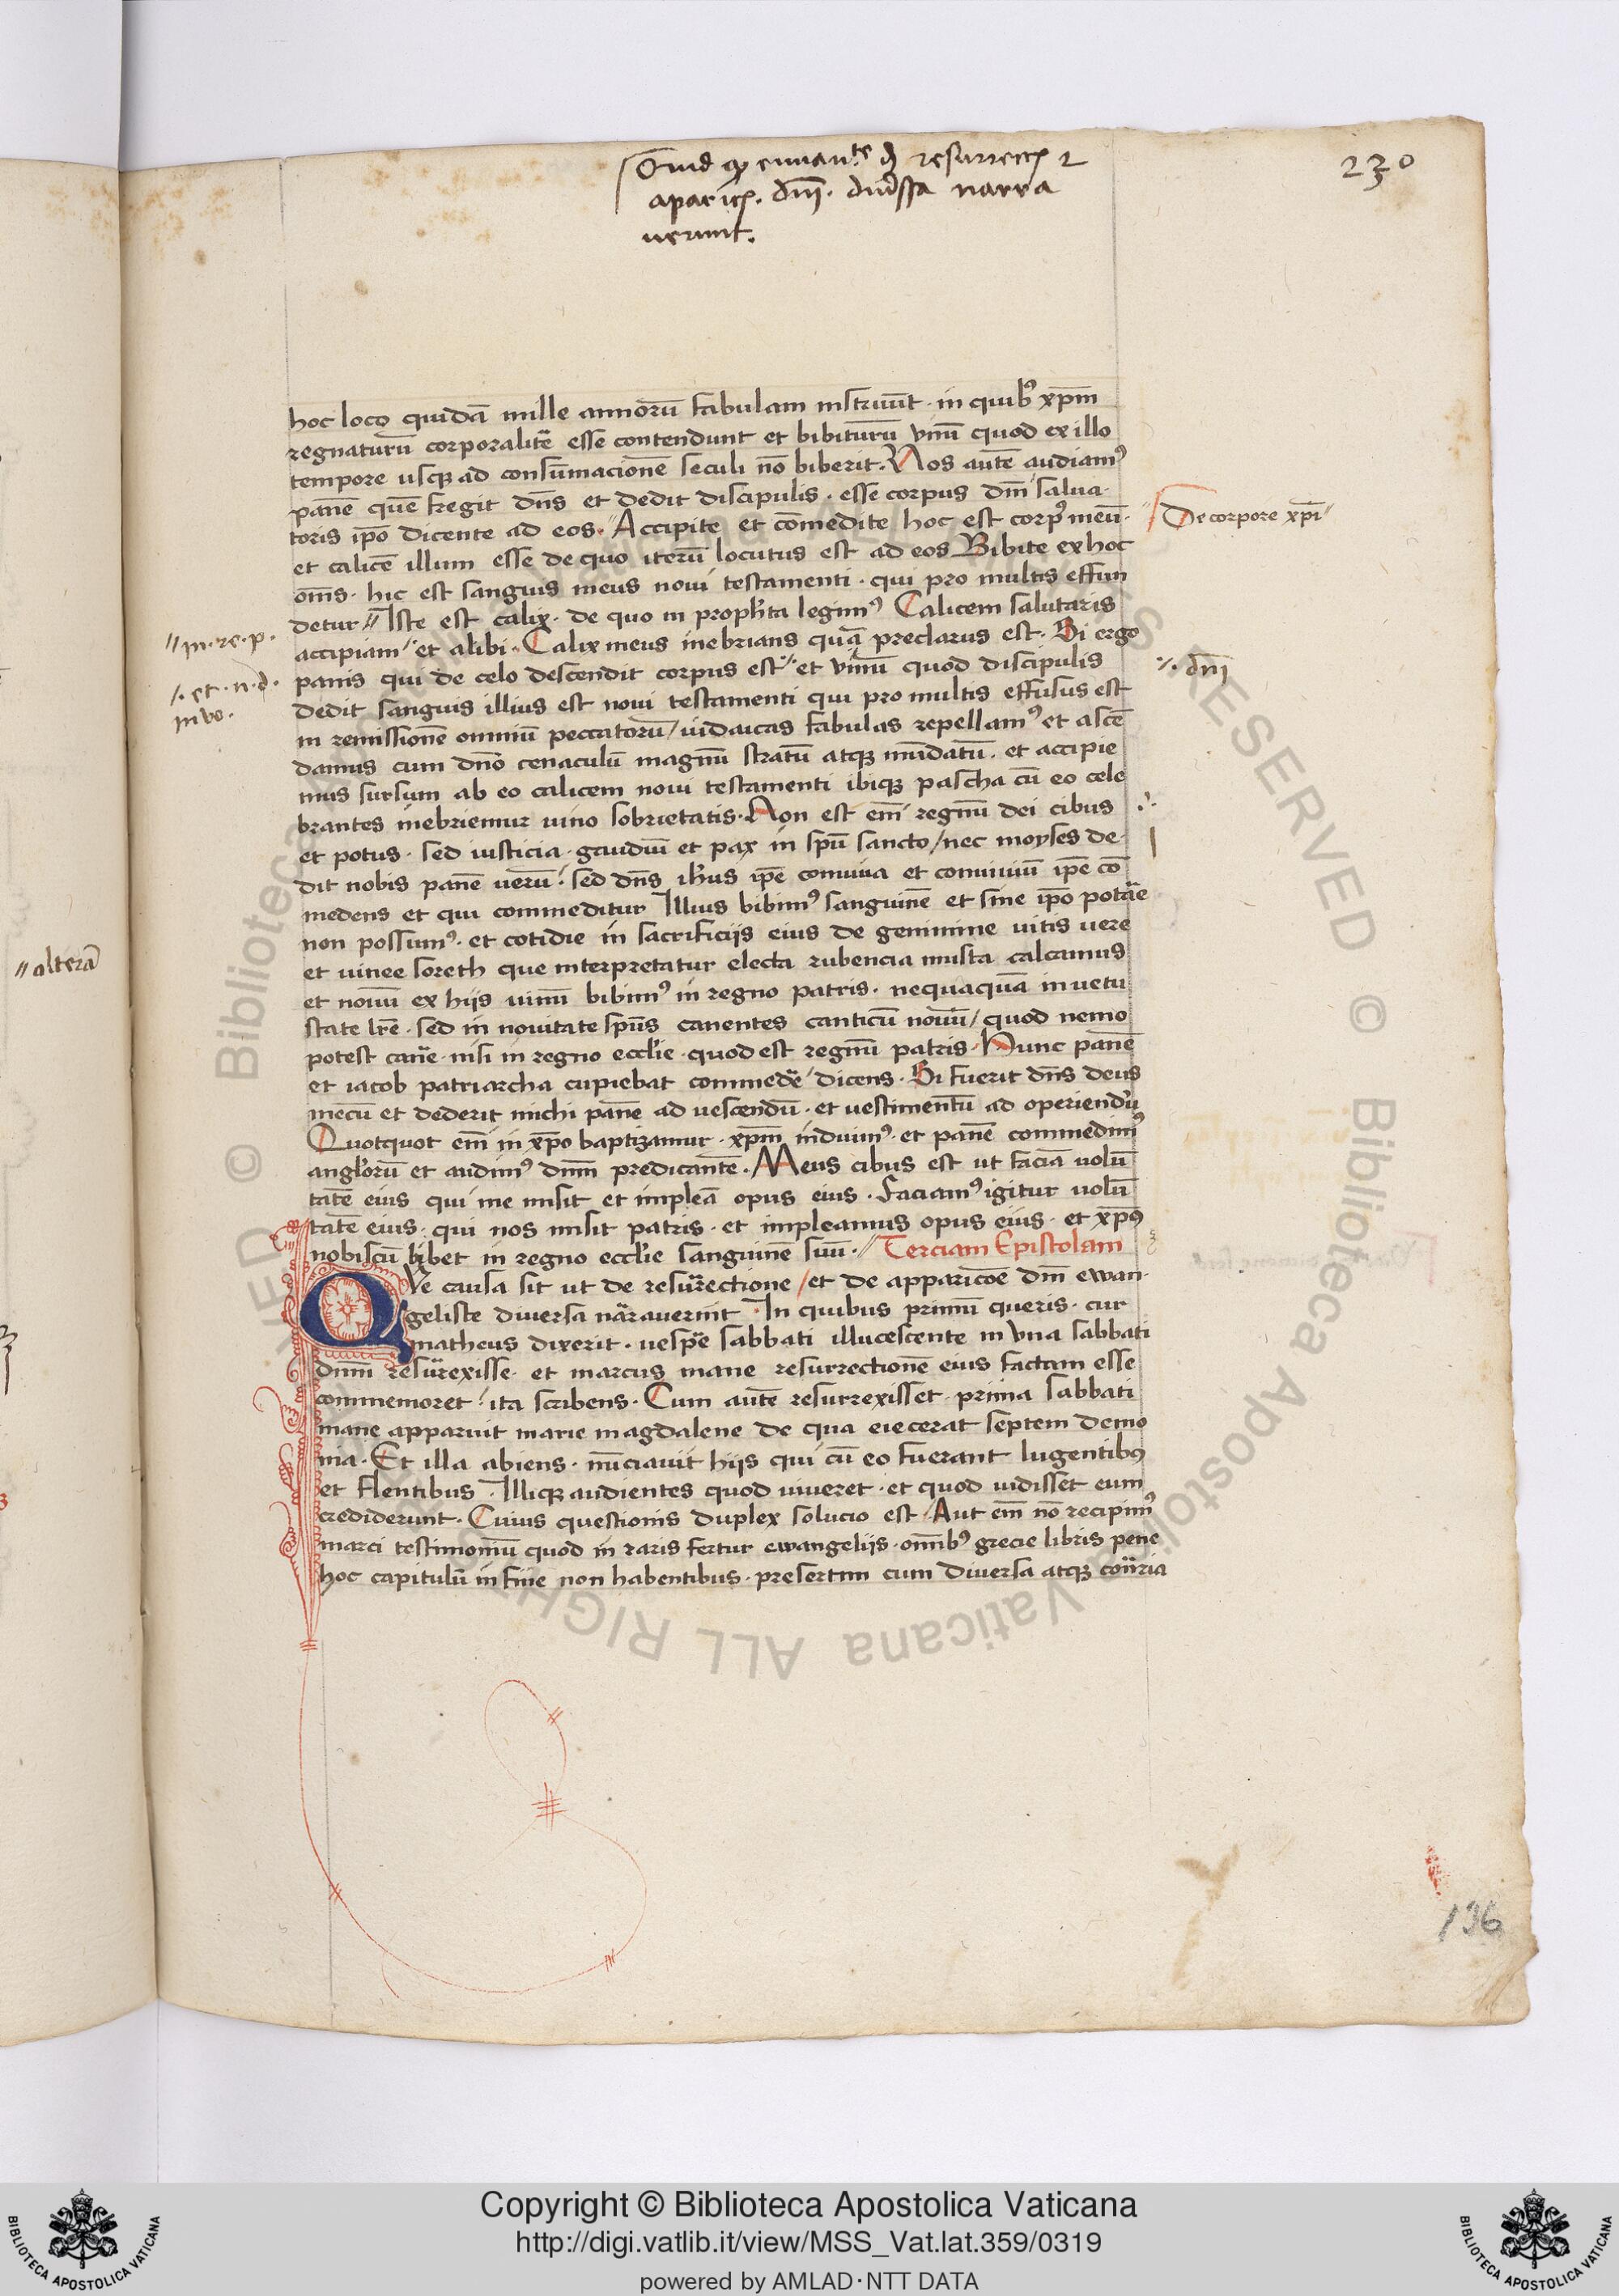 230
Quid q̄ euuan^te d̄ resurrecc̄ 2
aparic̄. dn̄i. diu̾ssa narra
uerunt.
hoc loco quidā mille annorū fabulam instruūt · in quibꝰ xp̄m
regnaturū corporalit̄ esse contendunt et bibiturū vinū quod ex illo
tempore usqꝫ ad consūmacionē seculi nō biberit. Nos autē audiamꝰ
panē quē fregit dn̄s et dedit discipulis · esse corpus dn̄i salua-
toris ip̄o dicente ad eos · Accipite et cōmedite hoc est corpꝰ meū ·
De corpore xp̄i
et calicē illum esse de quo iterū locutus est ad eos Bibite ex hoc
om̄s · hic est sanguis meus noui testamenti · qui pro multis effun
detur // Iste est calix · de quo in proph̄ta legimꝰ Calicem salutaris
// in · re · p ·
accipiam / et alibi · Calix meus inebrians quā preclarus est · Si ergo
panis qui de celo descendit corpus est ·/· et vinū quod discipulis
·/· dn̄i
/. et · n · d ·
in vo ·
dedit sanguis illius est noui testamenti qui pro multis effusus est
in remissionē omniū peccatorū / iudaicas fabulas repellamꝰ et ascē
damus cum dn̄o cenaculū magnū stratū atqꝫ mūdatū · et accipie
mus sursum ab eo calicem noui testamenti ibiqꝫ pascha cū eo cele
brantes inebriemur uino sobrietatis · Non est em̄ regnū dei cibus
et potus · sed iusticia · gaudiū et pax in sp̄u sancto / nec moyses de-
dit nobis panē uerū · sed dn̄s ih̄us ip̄e conuiua et conuiuiū ip̄e cō
medens et qui commeditur Illius bibimꝰ sanguinē et sine ip̄o potar̄e
non possumꝰ · et cotidie in sacrificiis eius de genimine uitis uere
et uinee soreth que interpretatur electa rubencia musta calcamus
// alterā
et nouū ex hijs uinū bibimꝰ in regno patris · nequaquā in uetu
state lr̄e · sed in nouitate sp̄us canentes canticū nouū / quod nemo
potest can̄e · nisi in regno eccl̄ie · quod est regnū patris · Hunc panē
et iacob patriarcha cupiebat commed̄e dicens · Si fuerit dn̄s deus
mecū et dederit michi panē ad uescendū · et uestimentū ad operiendū
Quotquot em̄ in xp̄o baptizamur · xp̄m induimꝰ · et panē commedimꝰ
angl̄orū et audimꝰ dn̄m predicantē · Meus cibus est ut faciā uolū
tatē eius qui me misit et impleā opus eius · Faciamꝰ igitur uolū
tatē eius · qui nos misit patris · et impleamus opus eius · et xp̄us
nobiscū bibet in regno eccl̄ie sanguinē suū · // Terciam Epistolam
QVe causa sit ut de resur̄ectione / et de apparicōe dn̄i ewan-
geliste diuersa nar̄auerint · In quibus primū queris · cur
matheus dixerit · uesp̄e sabbati illucescente in vna sabbati
dn̄m resur̄exisse · et marcus mane resurrectionē eius factam esse
commemoret · ita scribens · Cum autē resurrexisset · prima sabbati
mane apparuit marie magdalene de qua eiecerat septem demo
nia · Et illa abiens · nūciauit hijs qui cū eo fuerant lugentibꝰ
et flentibus · Illiqꝫ audientes quod uiueret · et quod uidisset eum
crediderunt · Cuius questionis duplex solucio est · Aut em̄ nō recipimꝰ
marci testimoniū quod in raris fertur ewangelijs · om̄ibꝰ grecie libris pene
hoc capitulū in fine non habentibus · presertim cum diuersa atqꝫ cōn̄ria
136
Copyright © Biblioteca Apostolica Vaticana
http://digi.vatlib.it/view/MSS_Vat.lat.359/0319
powered by AMLAD·NTT DATA